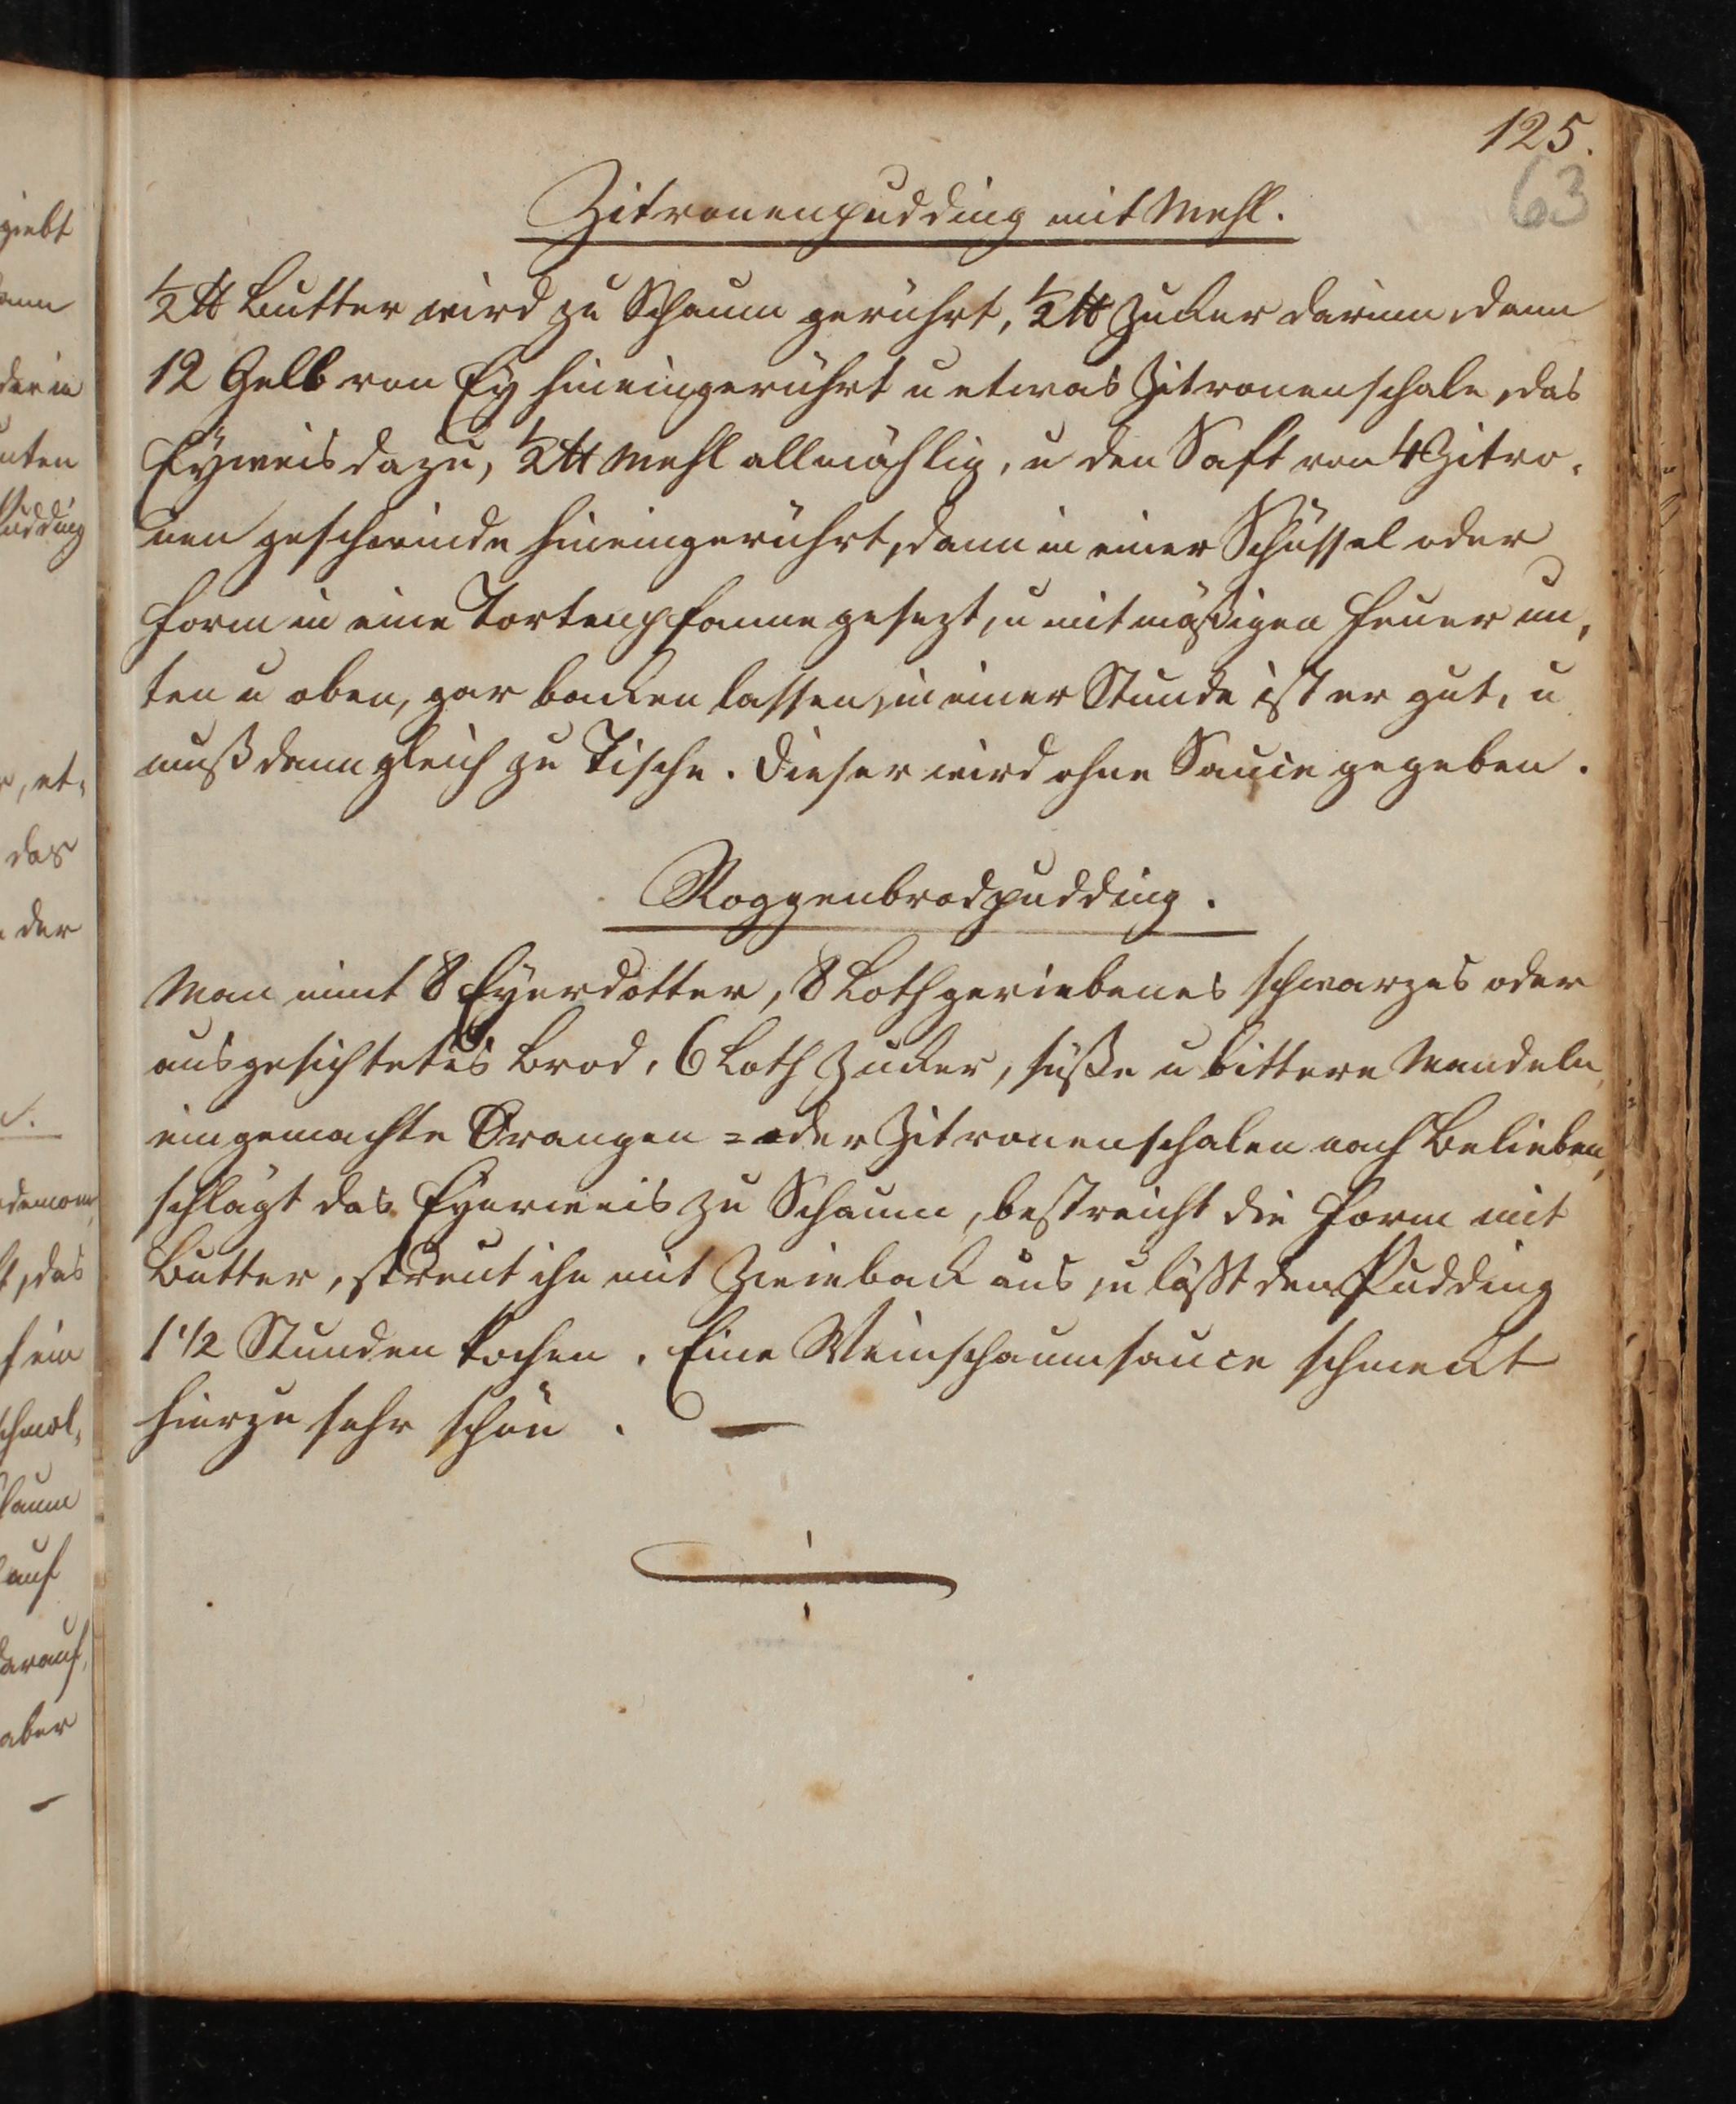 125.
63
Zitronenpudding mit Mehl.
½ ℔ Butter wird zu Schaum gerührt, ½ ℔ Zucker darinn, dann
12 Gelb von Ey hineingerührt u etwas Zitronenschale, das
Eyweis dazu, ½ ℔ Mehl allmählig, u den Saft von 4 Zitro-
nen geschwinde hineingerührt, dann in einer Schüssel oder
Form in eine Tortenpfanne gesezt, u mit mäßigen Feuer un-
ten u oben, gar backen lassen, in einer Stunde ist er gut, u
muß dann gleich zu Tische. Dieser wird ohne Sauce gegeben.
Roggenbrodpudding.
Man nimt 8 Eyerdotter, 8 Loth geriebenes schwarzes oder
ausgesichtetes Brod, 6 Loth Zucker, süße u bittere Mandeln,
eingemachte Orangen= oder Zitronenschalen nach Belieben,
schlägt das Eyerweis zu Schaum, bestreicht die Form mit
Butter, streut ihn mit Zwieback aus, u läßt den Pudding
1 1/2 Stunden kochen. Eine Weinschaumsauce schmeckt
hierzu sehr schön. —
giebt
darin
unten
Pudding
, et-
das
der
, das
ein
auf
darauf,
aber